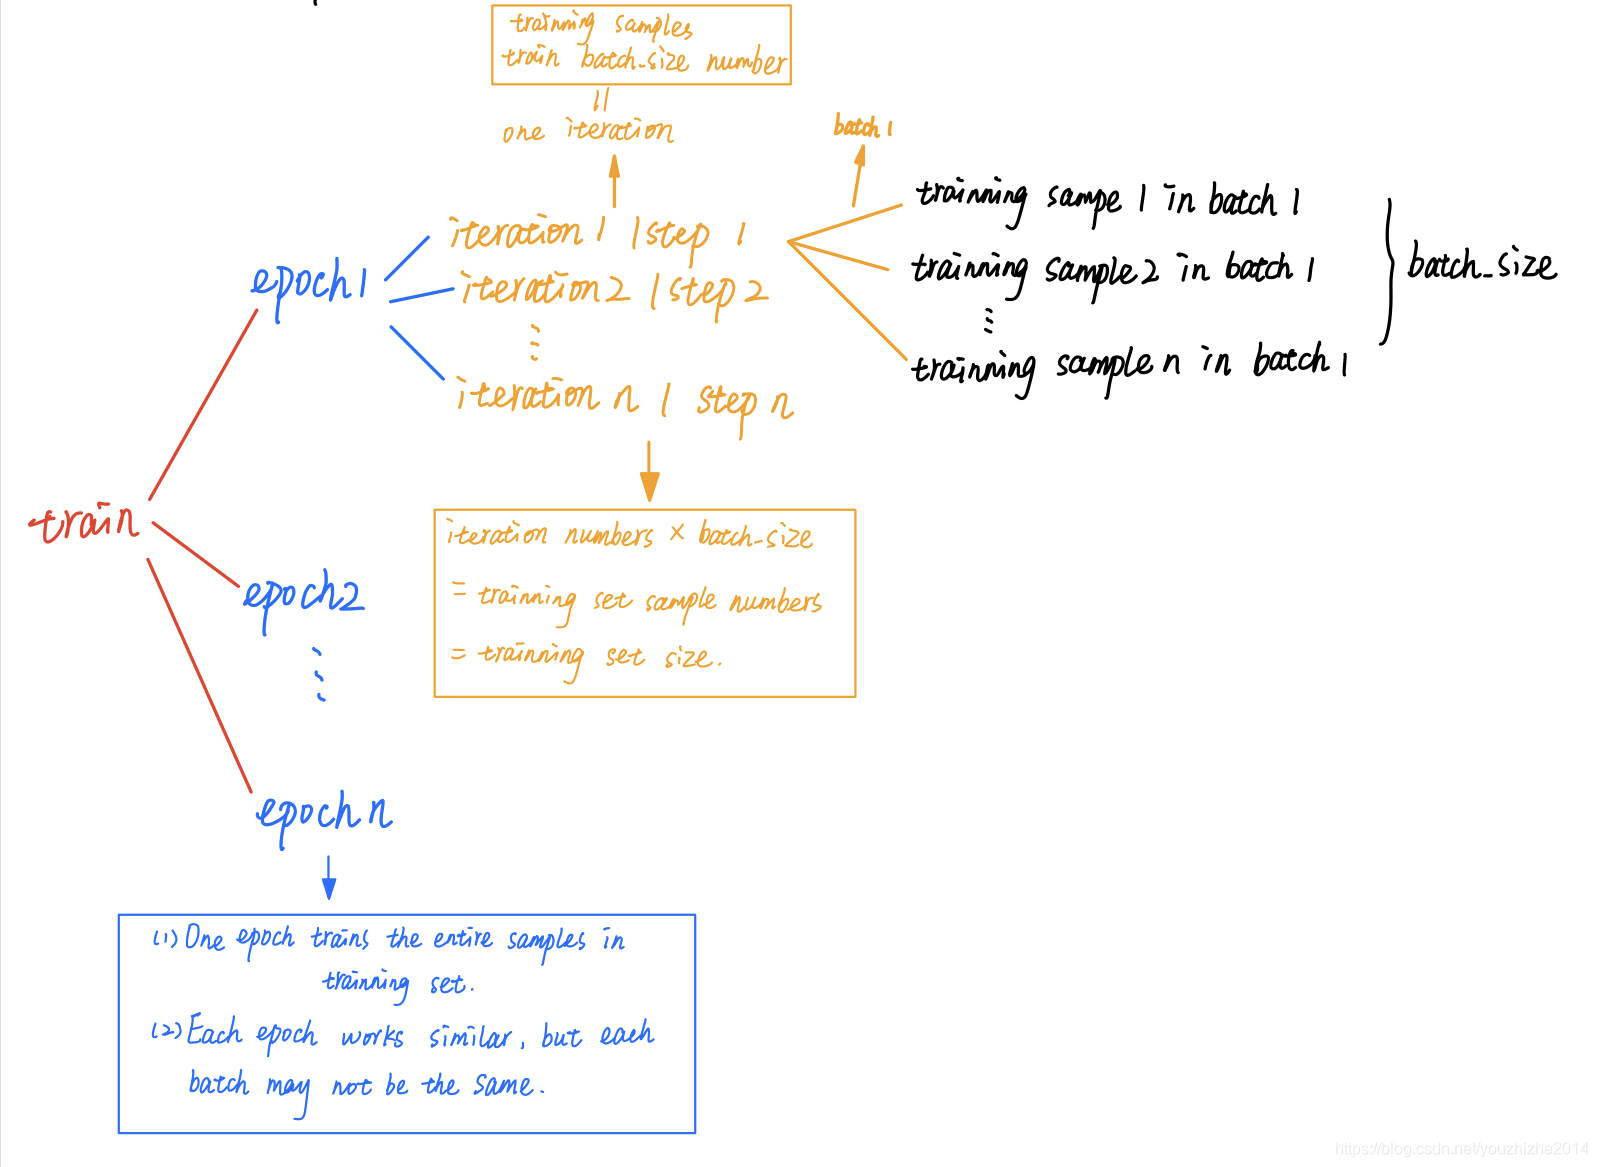 trainning samples
train batch_size number
one iteration
batch 1
iteration 1 | step 1
iteration 2 | step 2
iteration n | step n
trainning sampe 1 in batch 1
trainning sample2 in batch 1
trainning sample n in batch 1
batch_size
epoch1
train
epoch2
epoch n
iteration numbers × batch_size
= trainning set sample numbers
= trainning set size.
(1) One epoch trains the entire samples in
trainning set.
(2) Each epoch works similar, but each
batch may not be the same.
https://blog.csdn.net/youzhizhe2014